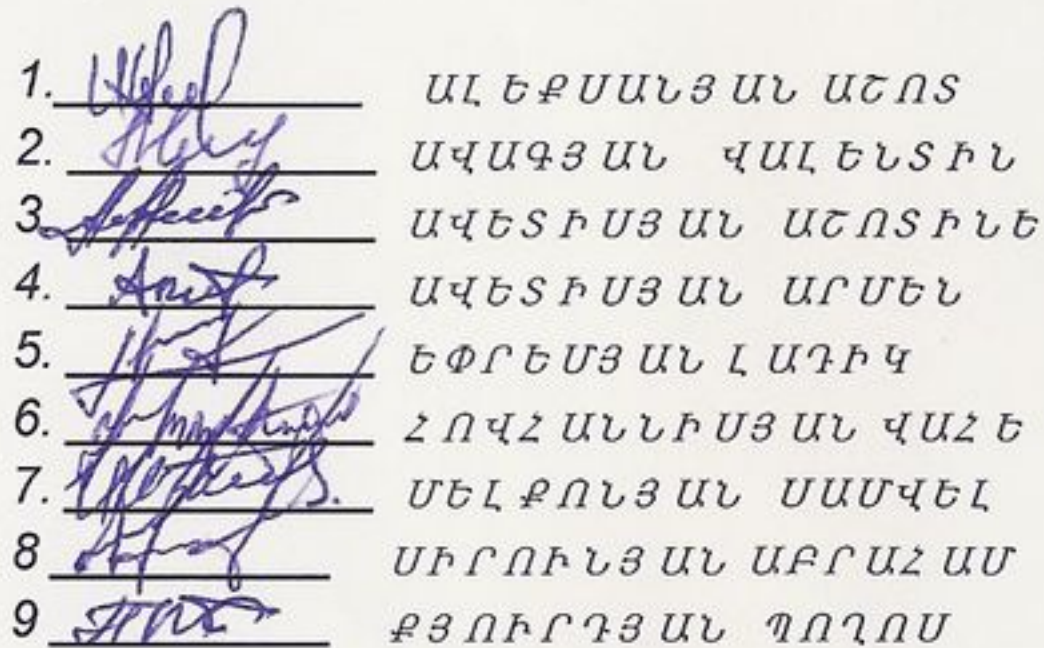 1. ԱԼԵՔՍԱՆՅԱՆ ԱՇՈՏ
2. ԱՎԱԳՅԱՆ ՎԱԼԵՆՏԻՆ
3. ԱՎԵՏԻՍՅԱՆ ԱՇՈՏԻՆԵ
4. ԱՎԵՏԻՍՅԱՆ ԱՐՄԵՆ
5. ԵՓՐԵՄՅԱՆ ԼԱԴԻԿ
6. ՀՈՎՀԱՆՆԻՍՅԱՆ ՎԱՀԵ
7. ՄԵԼՔՈՆՅԱՆ ՍԱՄՎԵԼ
8 ՍԻՐՈՒՆՅԱՆ ԱԲՐԱՀԱՄ
9 ՔՅՈՒՐԴՅԱՆ ՊՈՂՈՍ